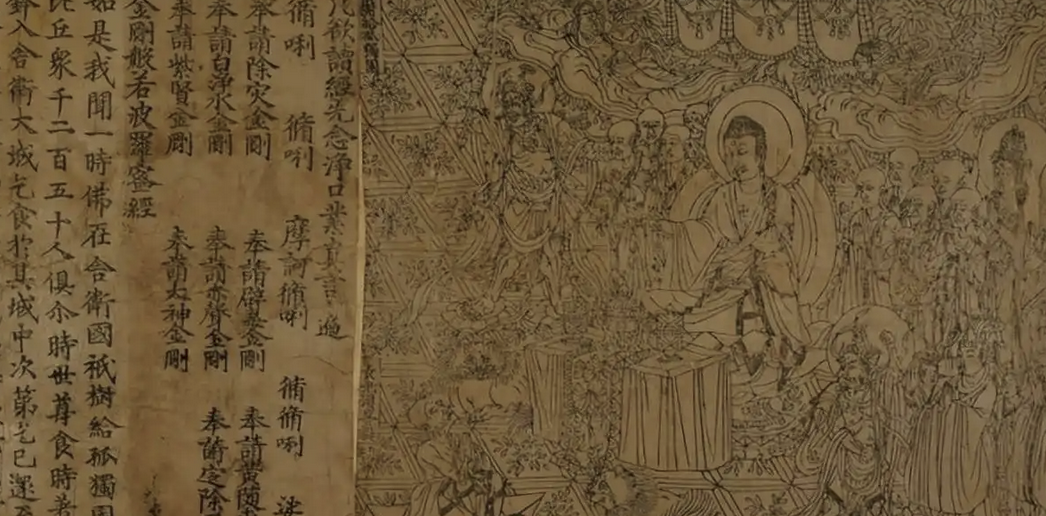 凡欲讀經先念淨口業真言遍
脩唎 脩唎 摩訶脩唎 脩脩唎 娑
奉請除灾金剛 奉請辟毒金剛 奉請黃隨
奉請白淨水金剛 奉請赤聲金剛 奉請定除
奉請紫賢金剛 奉請大神金剛
金剛般若波羅蜜經
如是我聞一時佛在舍衛國祇樹給孤獨園
比丘衆千二百五十人俱尒時世尊食時著
鉢入舍衛大城乞食於其城中次第乞已還至